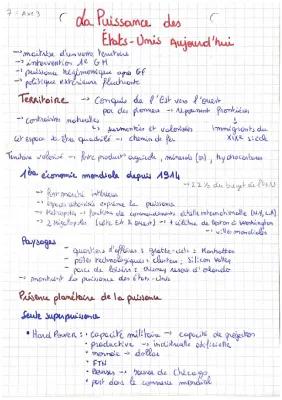 7 : Axe 3
La Puissance des
États-Unis Aujourd'hui
→ maîtrise d'un vaste territoire
→ intervention 1e GM
→ puissance hégémonique après GF
→ politique extérieure fluctuante
Territoire → Conquis de l'Est vers l'ouest
par des pionniers → repoussent frontières
→ contraintes naturelles
↳ surmontées et valorisées
immigrants du
XIXe siècle
cet espace va être quadrillé → chemin de fer
Territoire valorisé → forte product° agricole, minerais (or), hydrocarbures
1ère économie mondiale depuis 1914
→ 22% du budget de l'ONU
→ fort marché intérieur
→ espace urbanisé exprime la puissance
→ Métropoles → fonctions de commandements échelle internationale (NY, LA)
→ 2 Mégalopoles (côte Est & Ouest) → + célèbre de Boston à Washington
→ villes mondiales
Paysages
- quartiers d'affaires : gratte-ciels = Manhattan
- pôles technologiques = clusters ; Silicon Valley
- parcs de loisirs : Disney resort d'Orlando
→ montrent la puissance des États-Unis
Présence planétaire de la puissance
Seule superpuissance
• Hard Power : • capacité militaire → capacité de projection
• productive → industrielle
• monnaie → dollar
• FTN
• Bourses → bourse de Chicago
• port dans le commerce mondial